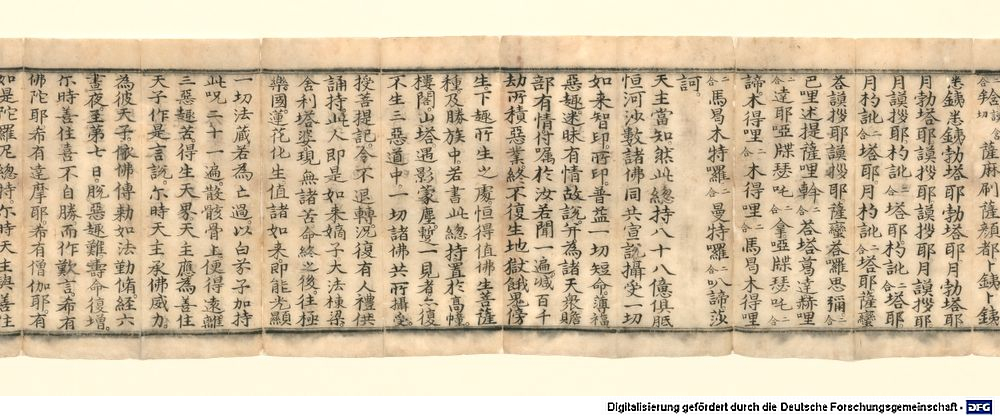 薩麻刷薩顏都卜鋨卜
悉鋨悉鋨勃塔耶勃塔耶月勃塔耶
月勃塔耶月謨拶耶謨拶耶月
月謨拶耶杓訛二合塔耶杓訛二合塔耶
月杓訛二合塔耶月杓訛二合塔耶薩鑾
荅謨拶耶謨拶耶薩鑾荅囉思彌二合
巴哩述提薩哩斡二合荅塔葛達赫哩
二合達耶啞牒瑟吒二合拿啞牒瑟吒二合
諦木得哩二合木得哩二合馬曷木得哩
二合馬曷木特囉二合曼特囉二合叭諦莎
訶
天主當知然此總持八十八億俱胝
恒河沙數諸佛同共宣說攝受一切
如来智印所印普益一切短命薄福
惡趣迷昧有情故說并為諸天衆贍
部有情付囑於汝若聞一遍滅百千
劫所積惡業終不復生地獄餓鬼傍
生下趣所生之處恒得值佛生菩薩
種及勝族中若書此總持置於高幢
樓閣山塔遇影蒙塵暫一見者亦復
不生三惡道中一切諸佛共所攝受
授菩提記令不退轉況復有人禮供
誦持此人即是如来嫡子大法棟梁
舍利塔婆現無諸苦命終之後往極
樂國蓮花化生值諸如来即能光顯
一切法藏若為亡過以白芥子加持
此呪二十一遍散骸骨上便得遠離
三惡趣苦得生天界天主應為善住
天子作是言說尒時天主承佛威力
為彼天子依佛傳勑如法勤脩經六
晝夜至第七日脫惡趣難壽命復增
尒時善住喜不自勝而作歎言希有
佛陀耶希有達摩耶希有僧伽耶有
如是陀羅尼總持尒時天主與善住
Digitalisierung gefördert durch die Deutsche Forschungsgemeinschaft - DFG